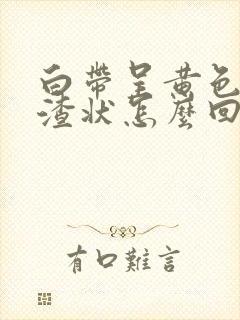 白帶呈黄色
渣状怎麽回
有口難言